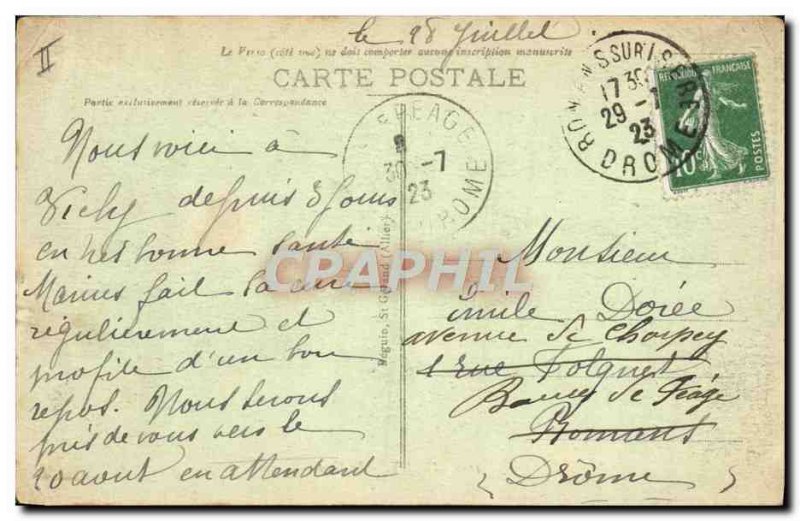 II
le 28 Juillet
Le Verso (côté vue) ne doit comporter aucune inscription manuscrite
CARTE POSTALE
Partie exclusivement réservée à la Correspondance
Nous voici à
Vichy depuis 8 jours
en très bonne santé
Marius fait sa cure
régulièrement et
profite d'un bon
repos. Nous serons
près de vous vers le
20 août en attendant
PEAGE
30 -7
23
DROME
Séguin, St Gérand (Allier)
ROMANS SUR ISERE
17 30
29 -7
23
DROME
REPUBLIQUE FRANÇAISE
10c
POSTES
CPRAPHIL
Monsieur
Emile Dorée
avenue de Chorpey
1 rue Polignet
Bourg de Péage
Romans
Drôme